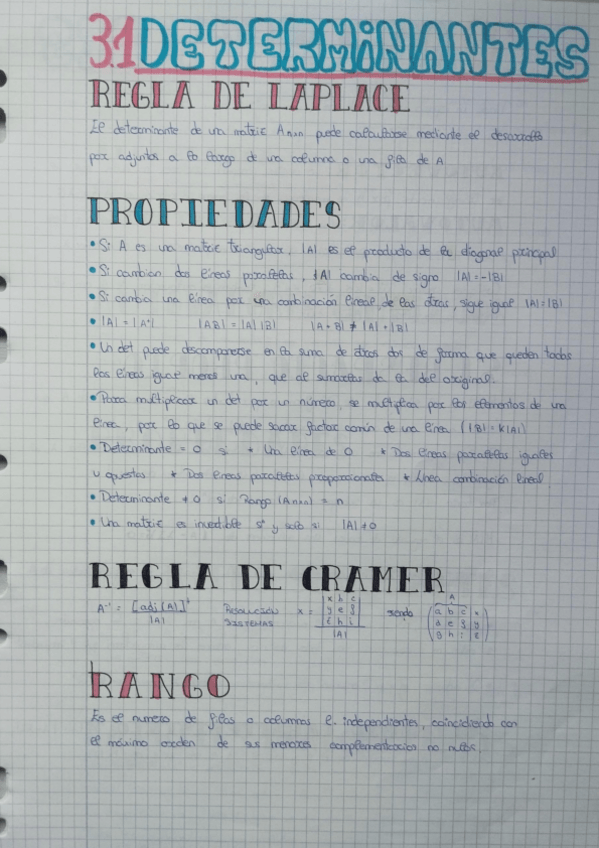 3.1 DETERMINANTES
REGLA DE LAPLACE
El determinante de una matriz Anxn puede calcularse mediante el desarrollo
por adjuntos a lo largo de una columna o una fila de A.
PROPIEDADES
• Si A es una matriz triangular, |A| es el producto de la diagonal principal
• Si cambian dos líneas paralelas, |A| cambia de signo |A|=-|B|
• Si cambia una línea por una combinación lineal de las otras, sigue igual |A|=|B|
• |A| = |Aᵗ| |AB| = |A| |B| |A+B| ≠ |A| + |B|
• Un det puede descomponerse en la suma de otros dos de forma que queden todas
las líneas igual menos una, que al sumarlas da la del original.
• Para multiplicar un det por un número, se multiplica por los elementos de una
línea, por lo que se puede sacar factor común de una línea (|B| = K|A|)
• Determinante = 0 si * Una línea de 0 * Dos líneas paralelas iguales
u opuestas * Dos líneas paralelas proporcionales * Línea combinación lineal
• Determinante ≠ 0 si Rango (Anxn) = n
• Una matriz es invertible si y solo si |A| ≠ 0
REGLA DE CRAMER
A⁻¹ = [adj(A)]ᵗ / |A| RESOLUCIÓN SISTEMAS x = / |A| siendo A
RANGO
Es el numero de filas o columnas l. independientes, coincidiendo con
el máximo orden de sus menores complementarios no nulos.